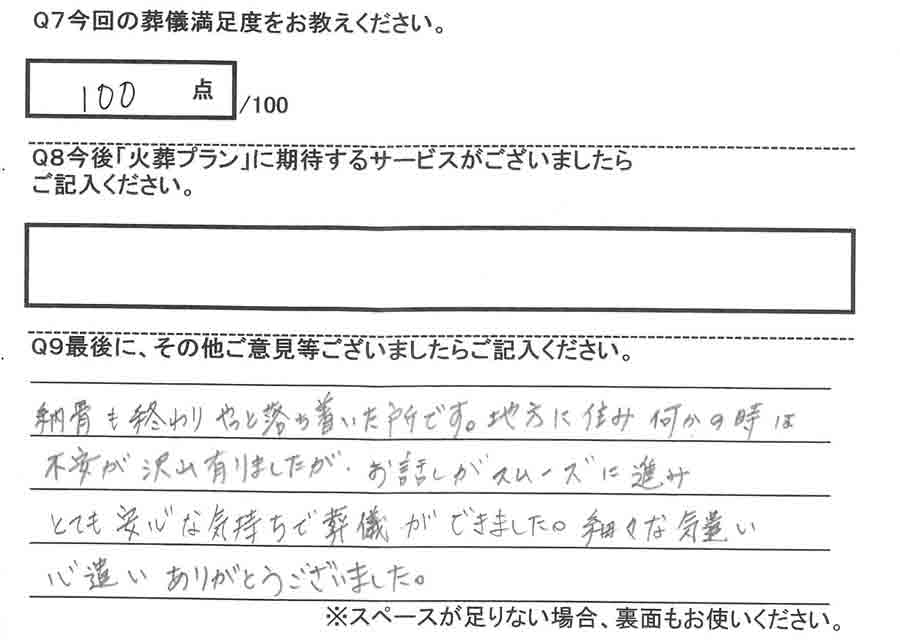 Q7今回の葬儀満足度をお教えください。
100 点 /100
Q8今後「火葬プラン」に期待するサービスがございましたら
ご記入ください。
Q9最後に、その他ご意見等ございましたらご記入ください。
納骨も終わりやっと落ち着いた所です。地方に住み 何かの時は
不安が沢山有りましたが、お話しがスムーズに進み
とても安心な気持ちで葬儀ができました。細々な気遣い
心遣いありがとうございました。
※スペースが足りない場合、裏面もお使いください。